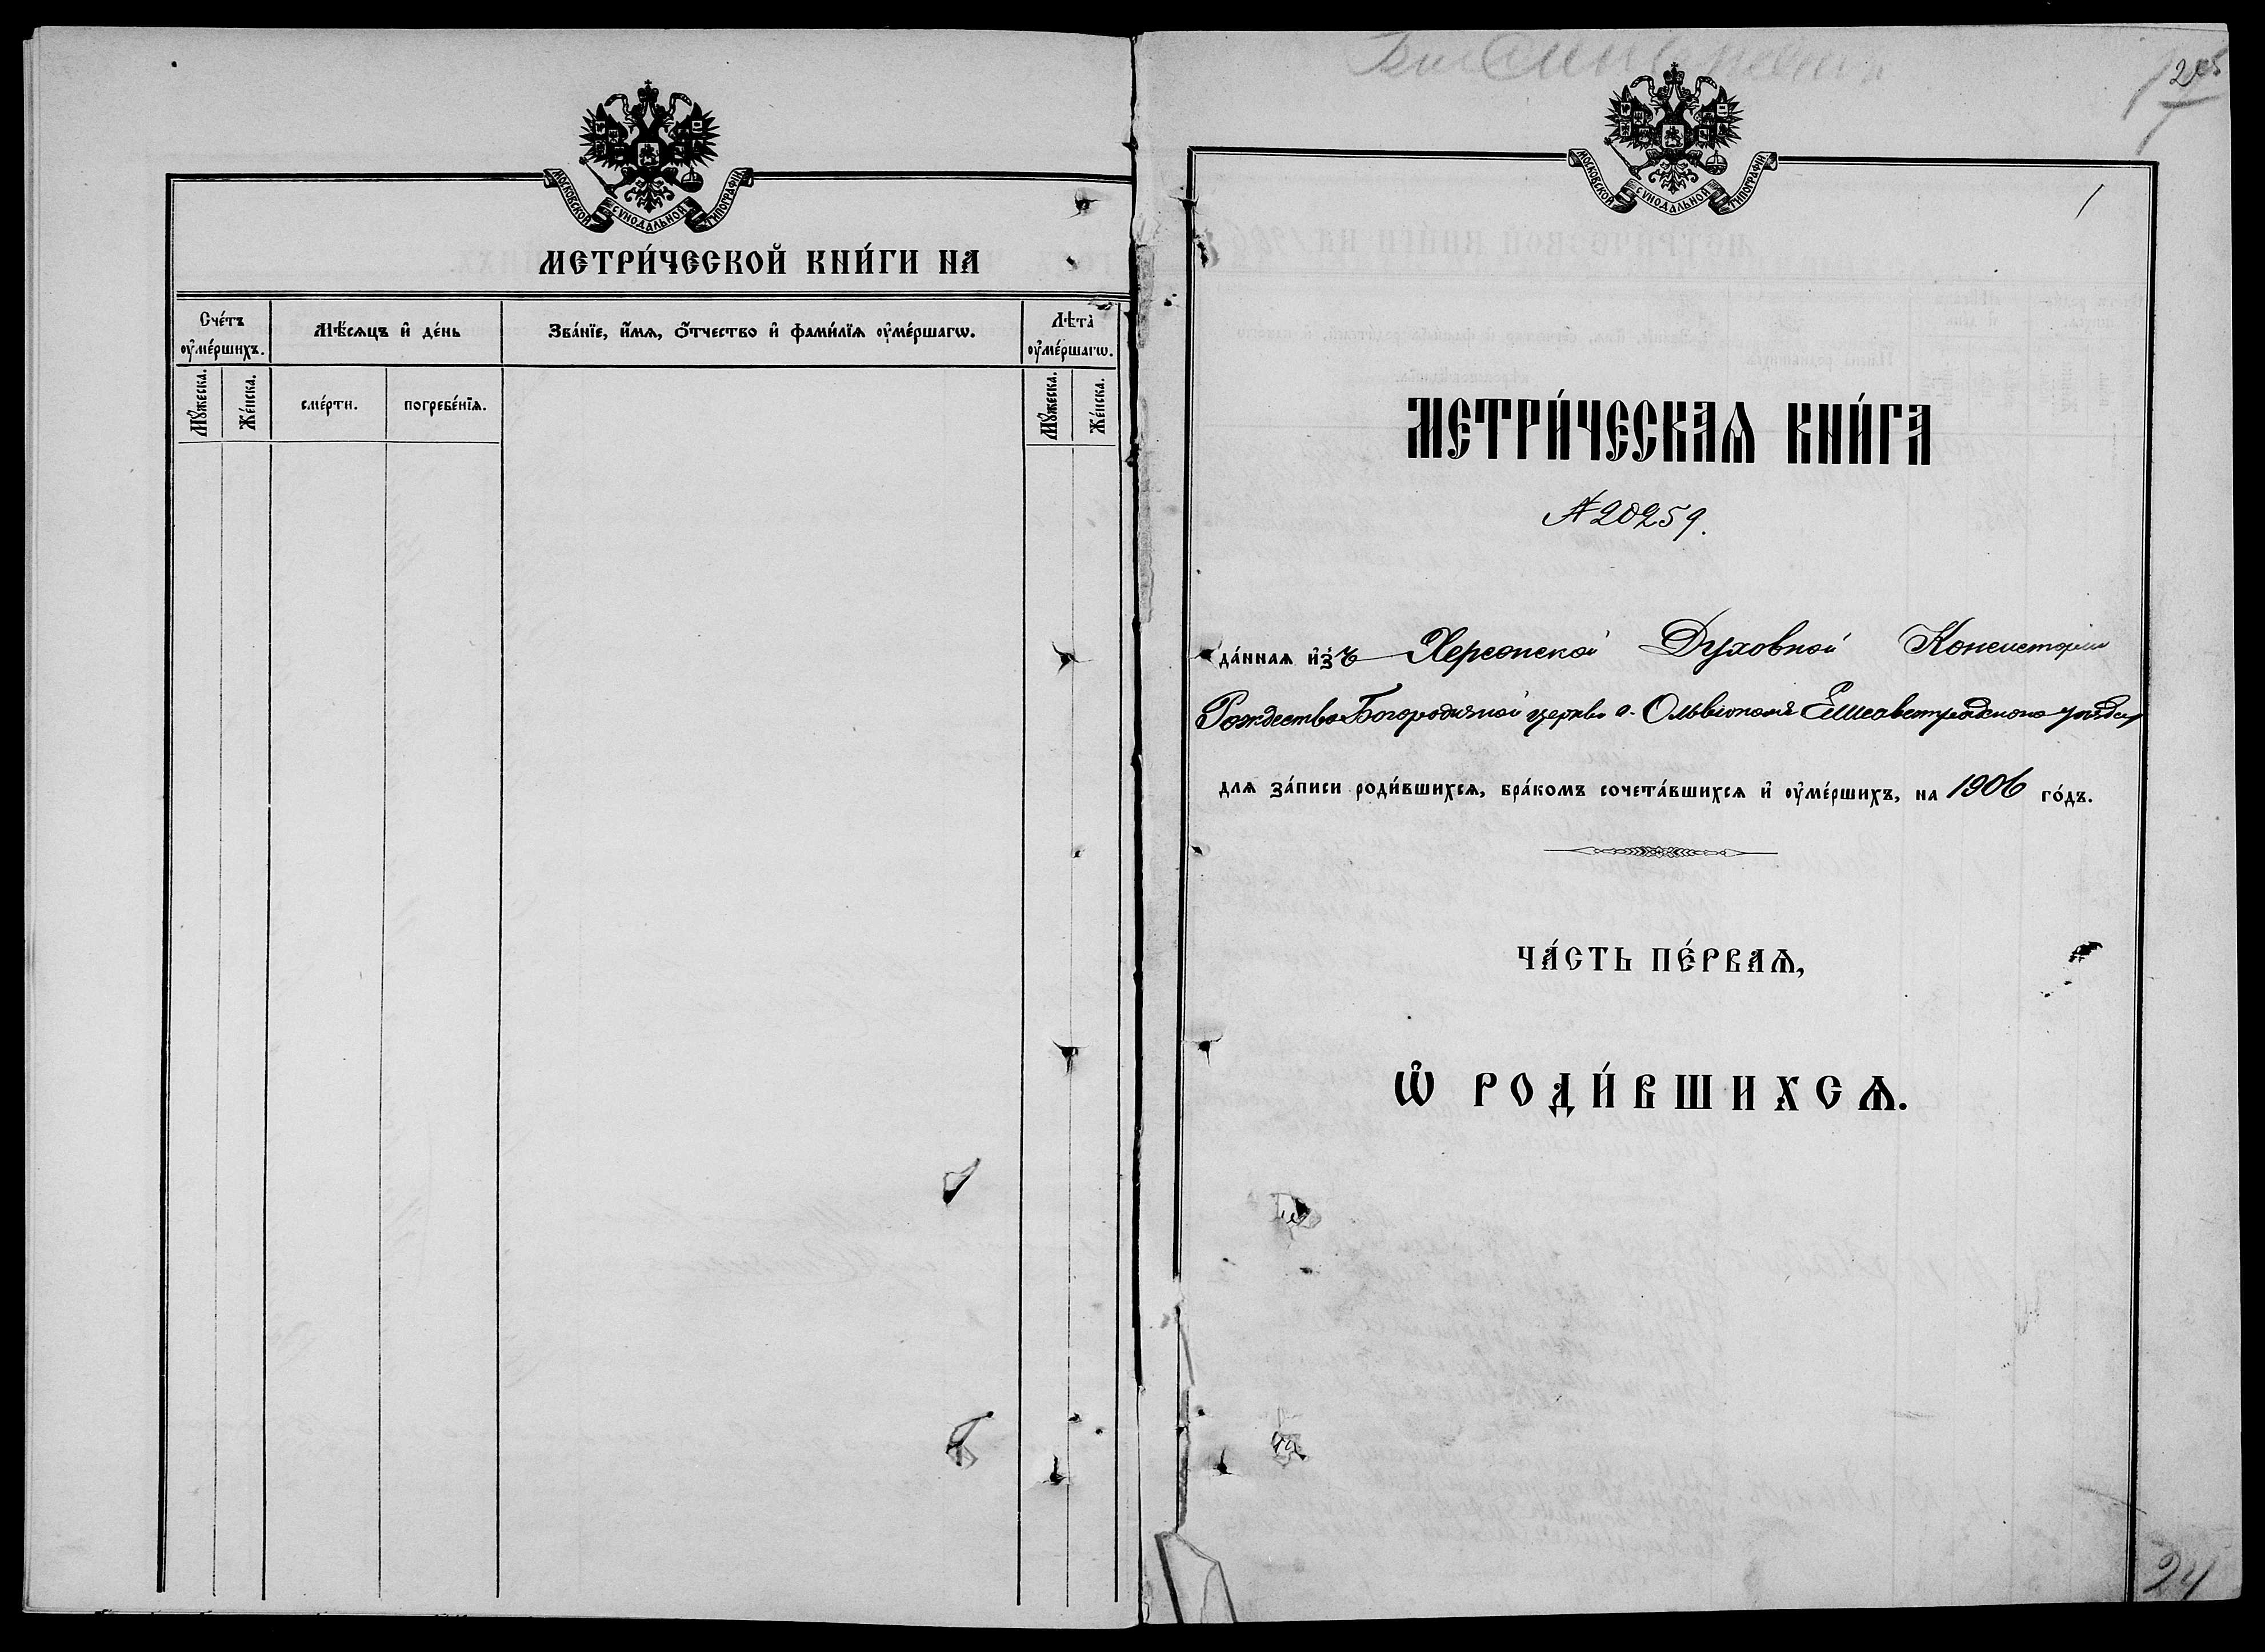 МОСКОВСКОЙ СѴНОДАЛЬНОЙ ТИПОГРАФІИ
МЕТРИ́ЧЕСКОЙ КНИ́ГИ НА
Сче́тъ ᲂу҆ме́ршихъ.
Мѣ́сяцъ и҆ де́нь
Зва́нїе, и҆́мѧ, ѻ҆́тчество и҆ фами́лїѧ ᲂу҆ме́ршагѡ.
Лѣта̀ ᲂу҆ме́ршагѡ.
Мꙋ́жеска.
Же́нска.
сме́рти.
погребе́нїѧ.
Мꙋ́жеска.
Же́нска.
МОСКОВСКОЙ СѴНОДАЛЬНОЙ ТИПОГРАФІИ
1
МЕТРИ́ЧЕСКАѦ КНИ́ГА
№ 20259.
да́ннаѧ и҆з̾ъ Херсонской Духовной Консисторіи
Рождество-Богородичной церкви г. Ольвіополя Елисаветградскаго уѣзда
длѧ за́писи роди́вшихсѧ, бра́комъ сочета́вшихсѧ и҆ ᲂу҆ме́ршихъ, на 1906 го́дъ.
ЧА́СТЬ ПЕ́РВАѦ,
Ѡ҆ РОДИ́ВШИХСѦ.
24